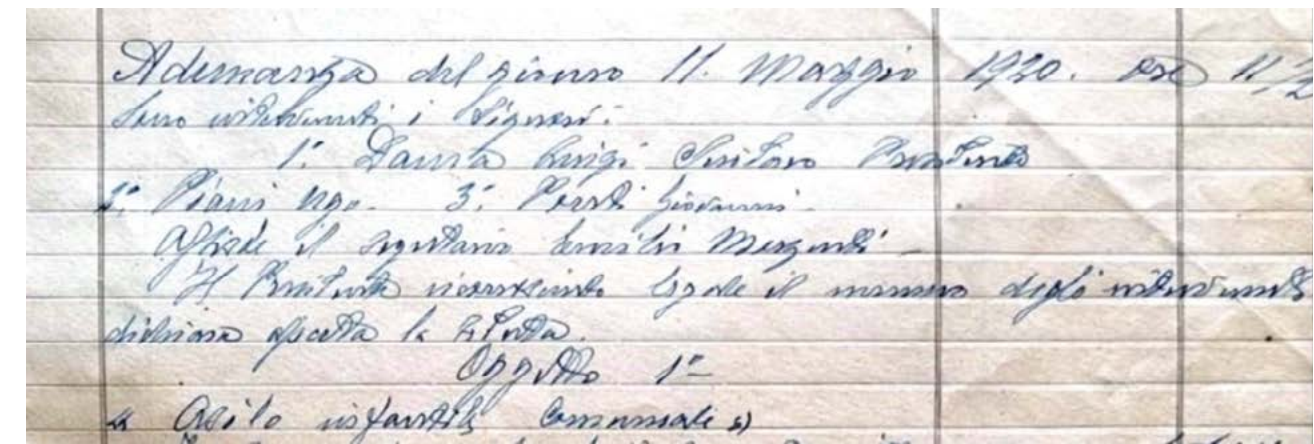 Adunanza del giorno 11. Maggio 1920. ore 11/2
Sono intervenuti i Signori:
1° Luigi Presidente
2° Piani Ugo. 3° Giovanni.
Assiste il segretario Emilio
Il Presidente riconosciuto legale il numero degli intervenuti
dichiara aperta la seduta.
Oggetto 1°
« Asilo infantile Comunale »